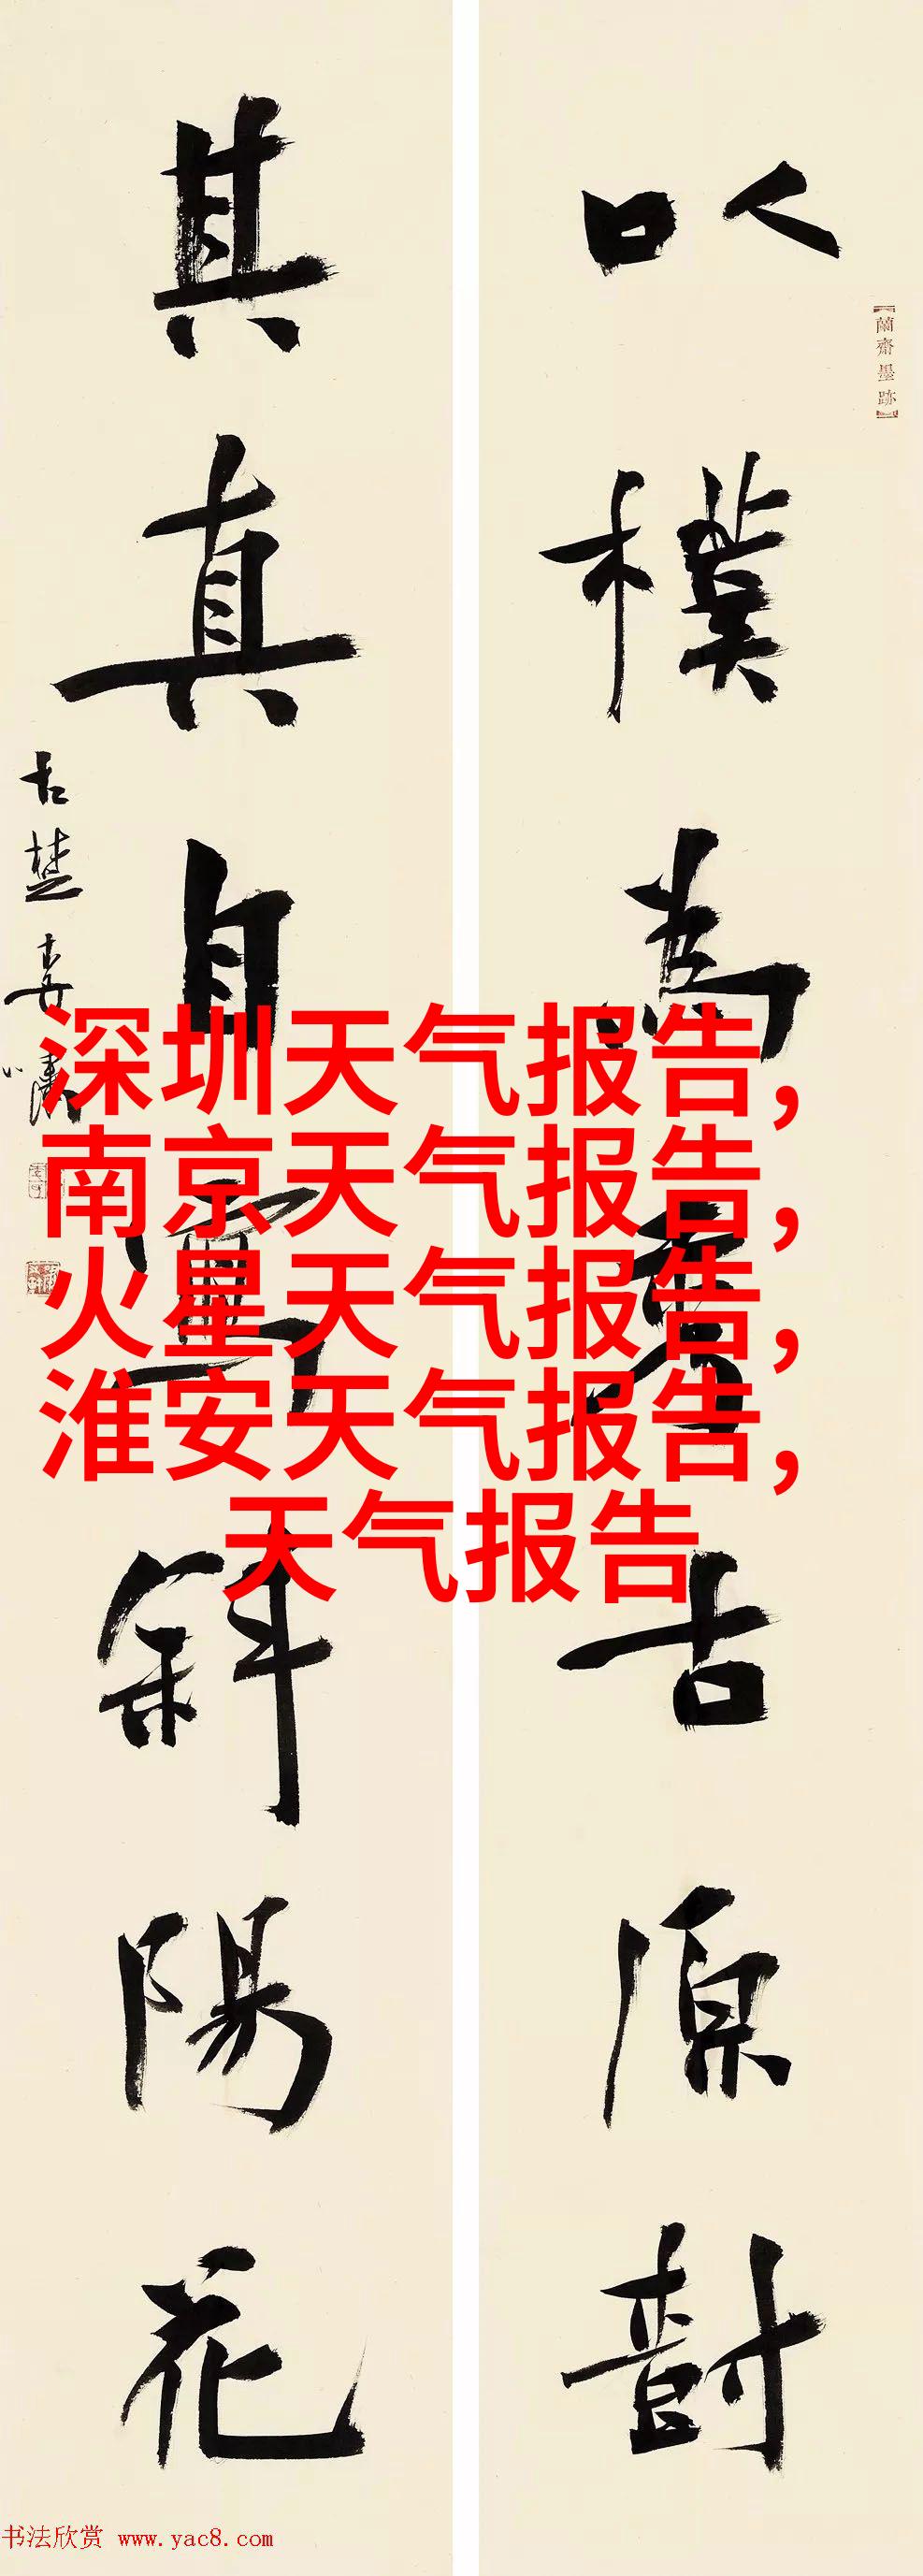 以樸為秀古原樹
其真自寫斜陽花
古楚
【蘭齋墨跡】
深圳天气报告,
南京天气报告,
火星天气报告,
淮安天气报告,
天气报告
书法欣赏 www.yac8.com